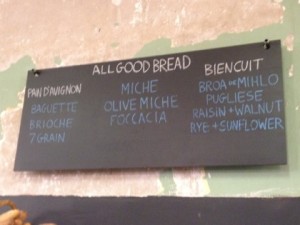 ALL GOOD BREAD
PAN D'AVIGNON
BAGUETTE
BRIOCHE
7 GRAIN
MICHE
OLIVE MICHE
FOCCACIA
BIENCUIT
BROA DE MIHLO
PUGLIESE
RAISIN + WALNUT
RYE + SUNFLOWER